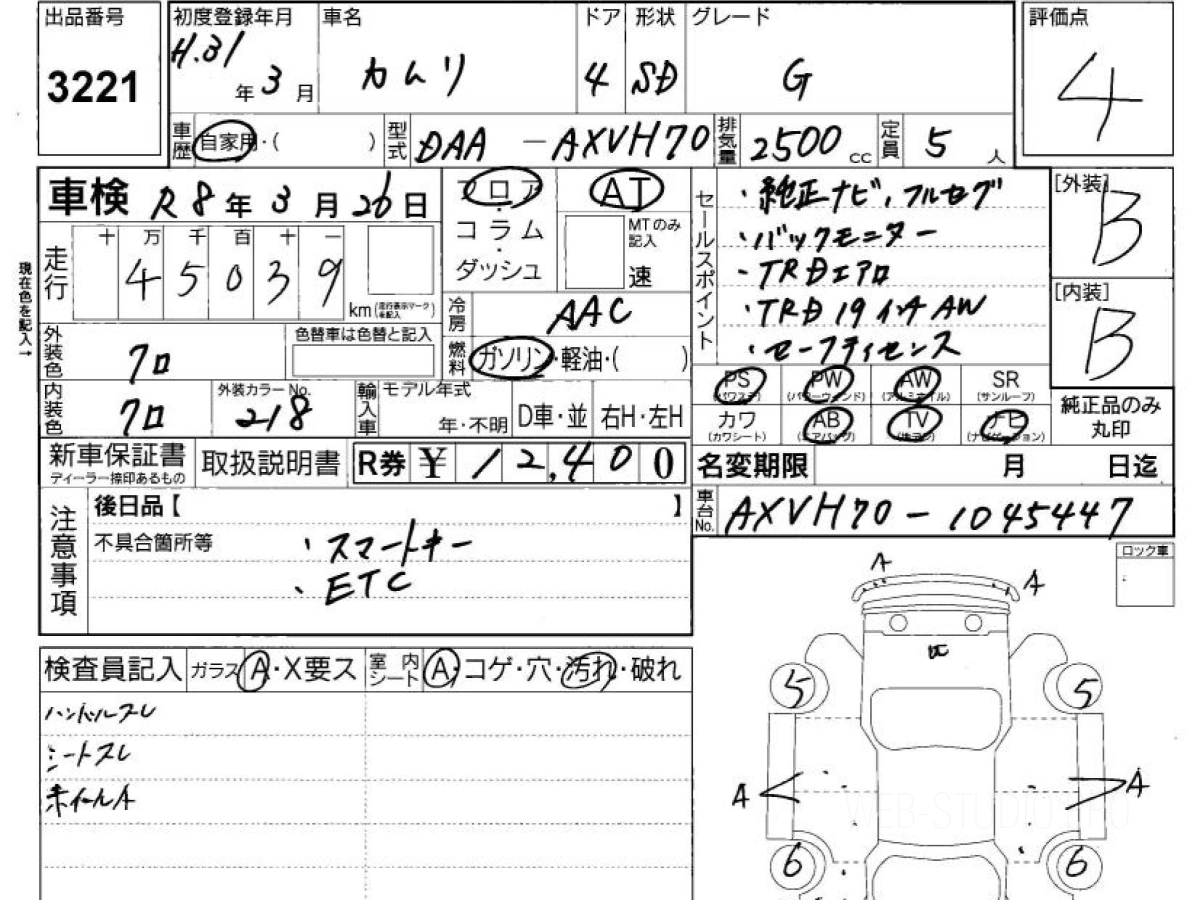 出品番号 初度登録年月 車名 ドア 形状 グレード 評価点
3221 H.31年 3月 カムリ 4 SD G 4
車歴 自家用・( ) 型式 DAA-AXVH70 排気量 2500cc 定員 5人
車検 R8年 3月 26日 フロア AT セールスポイント ・純正ナビ、フルセグ [外装] B
・コラム・ MTのみ記入 ・バックモニター
走行 十 万 千 百 十 一 ダッシュ 速 ・TRDエアロ
現在色を記入→ 4 5 0 3 9 km(走行表示マークを記入) ・TRD 19インチAW [内装] B
冷房 AAC ・セーフティセンス
外装色 クロ 色替車は色替と記入 燃料 ガソリン・軽油・( )
PS(パワステ) PW(パワーウィンド) AW(アルミホイル) SR(サンルーフ) 純正品のみ丸印
内装色 クロ 外装カラーNo. 218 輸入車 モデル年式 年・不明 D車・並 右H・左H カワ(カワシート) AB(エアバッグ) TV(地デジ) ナビ(ナビゲーション)
新車保証書 ディーラー捺印あるもの 取扱説明書 R券 ¥ 12,400 名変期限 月 日迄
注意事項 後日品【 】 車台No. AXVH70-1045447
不具合箇所等 ・スマートキー ロック車
・ETC
A A
検査員記入 ガラス A・X要ス 室内シート A・コゲ・穴・汚れ・破れ
ハンドルスレ 5 5
シートスレ
ホイールA A A
WEB-STUDIO.PRO
6 6